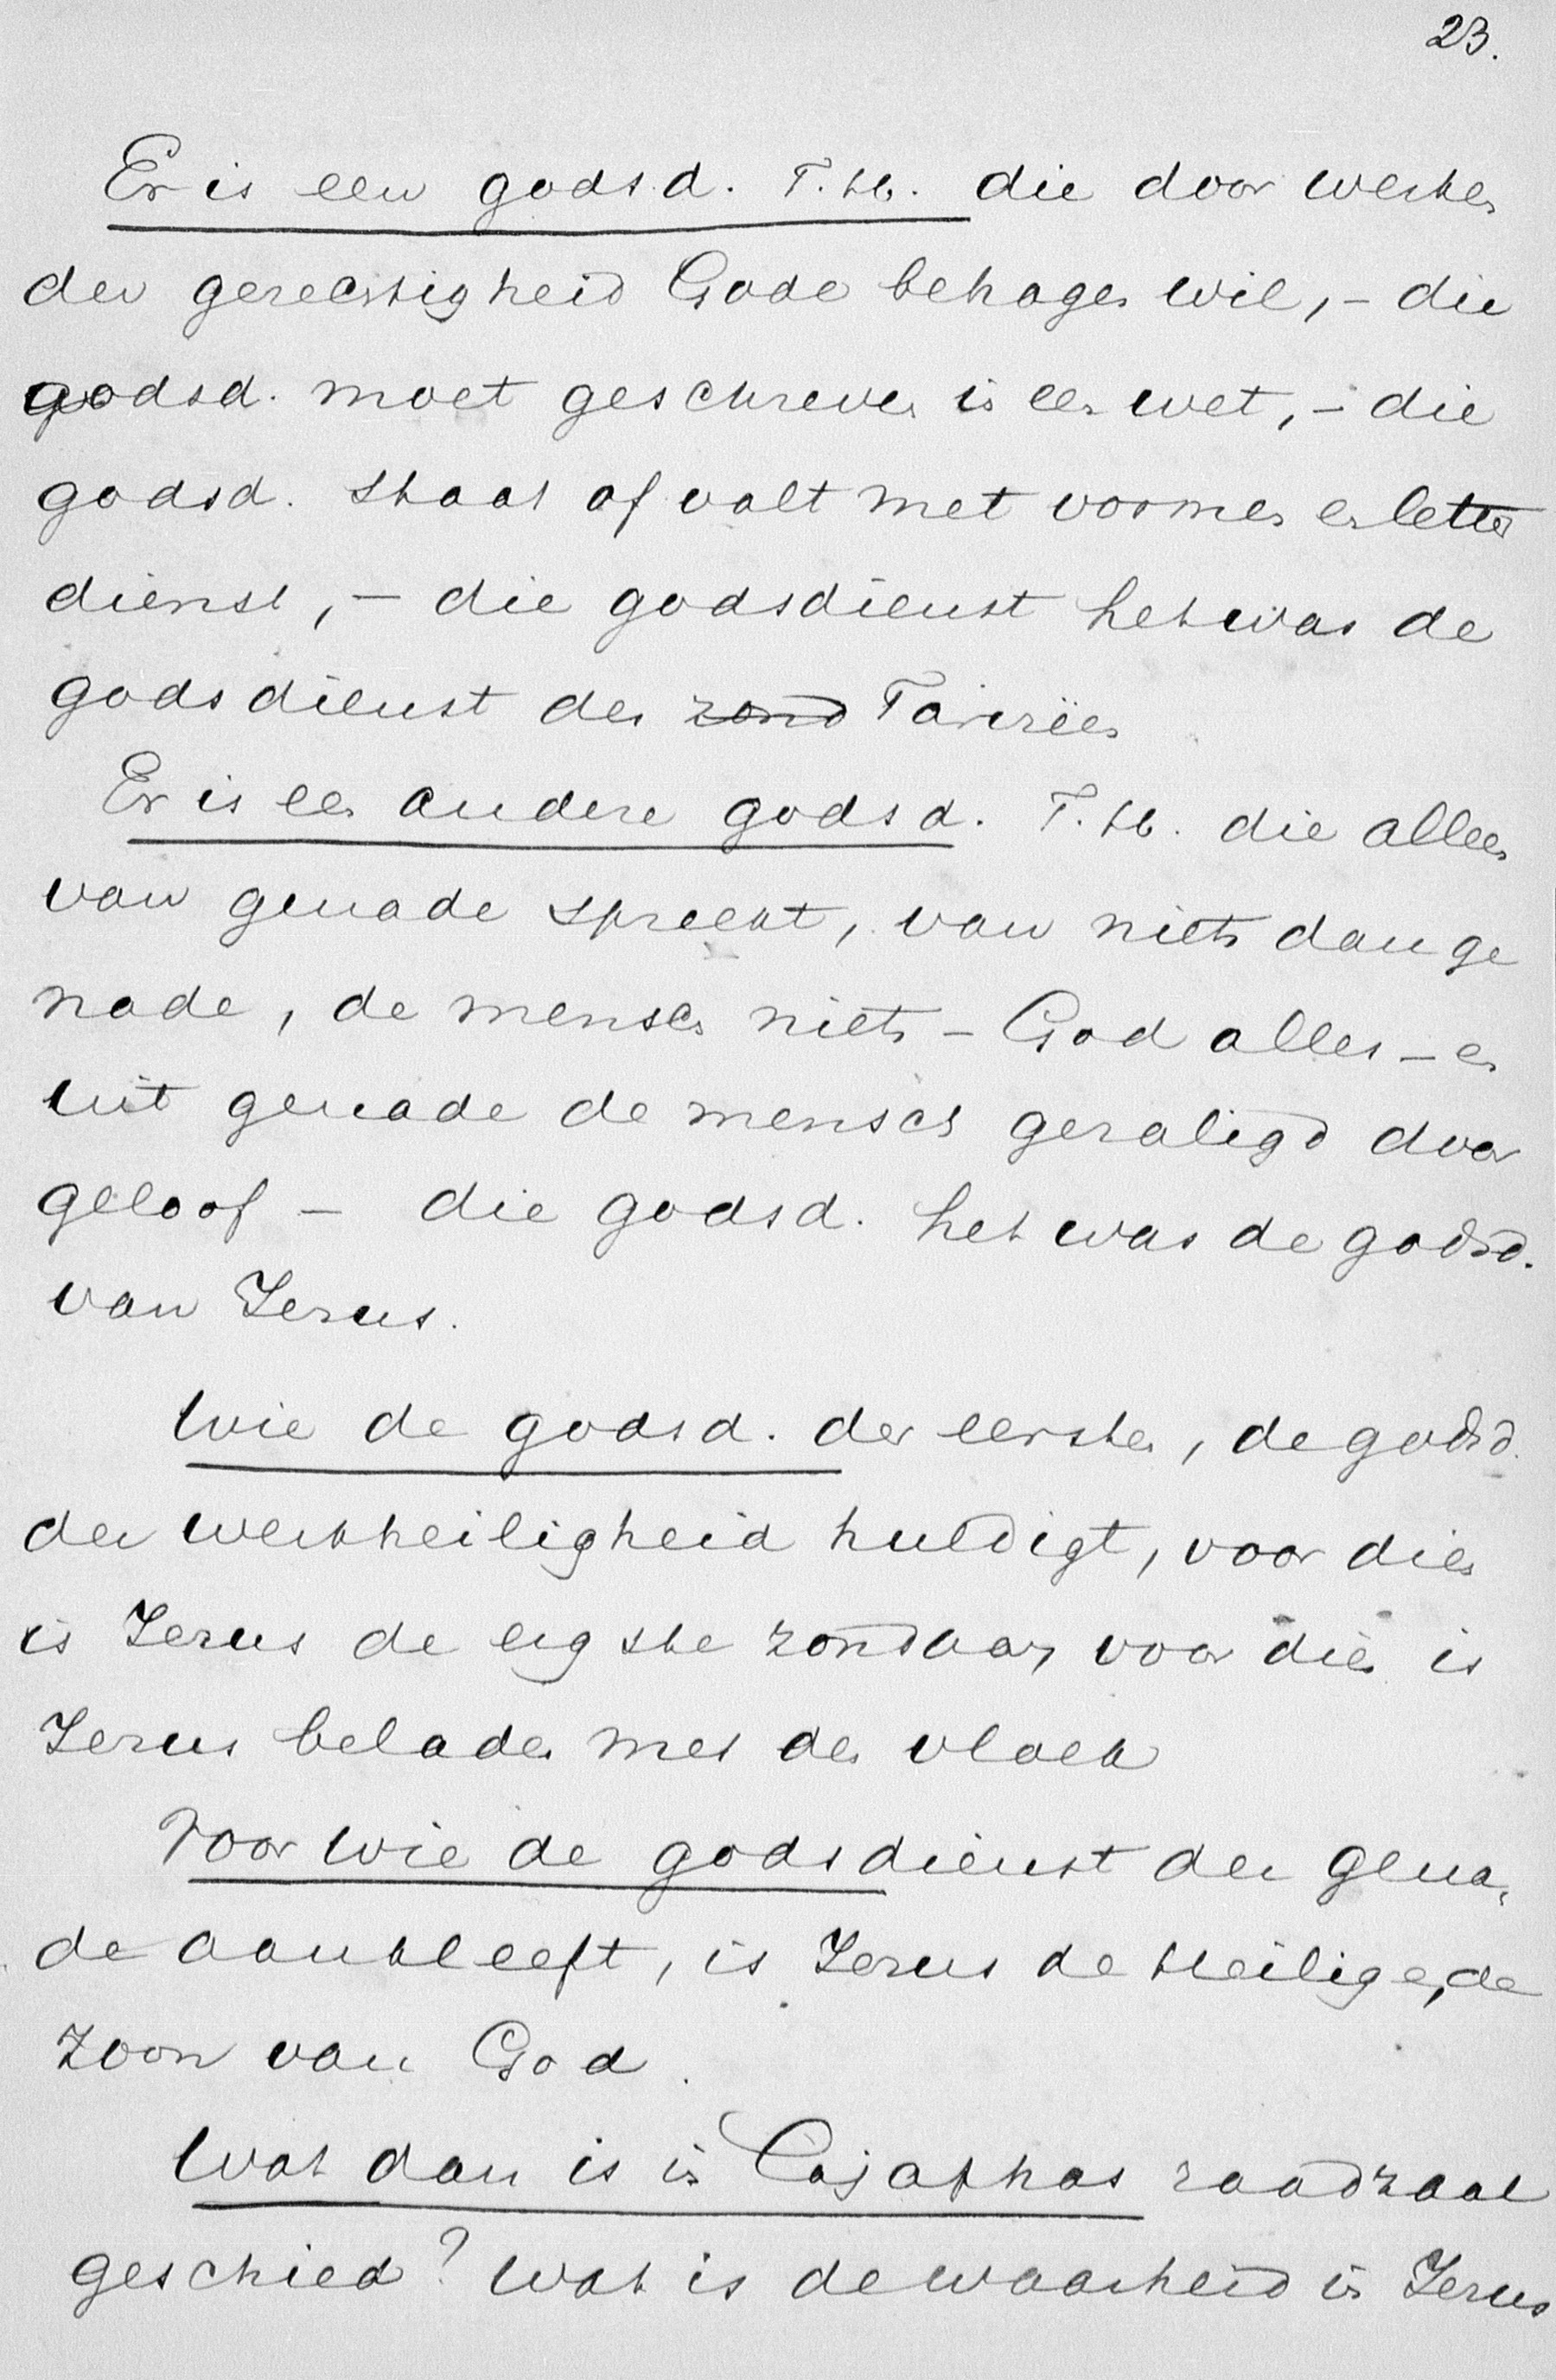 23.
Er is een godsd. T. H. die door werken
der gerechtigheid Gode behagen wil, – die
godsd. moet geschreven in een wet, – die
godsd. staat of valt met vormen en letter
dienst, – die godsdienst het was de
godsdienst der zond Fariseën
Er is een andere godsd. T. H. die alleen
van genade spreekt, van niets dan ge
nade, de mensch niets – God alles – en
uit genade de mensch gezaligd door
geloof – die godsd. het was de godsd.
van Jezus.
Wie de godsd. der eersten, de godsd.
der werkheiligheid huldigt, voor dien
is Jezus de ergste zondaar, voor dien is
Jezus beladen met den vloek
Voor wie de godsdienst der gena„
de aankleeft, is Jezus de Heilige, de
Zoon van God.
Wat dan is in Cajaphas raadzaal
geschied? Wat is de waarheid in Jezus